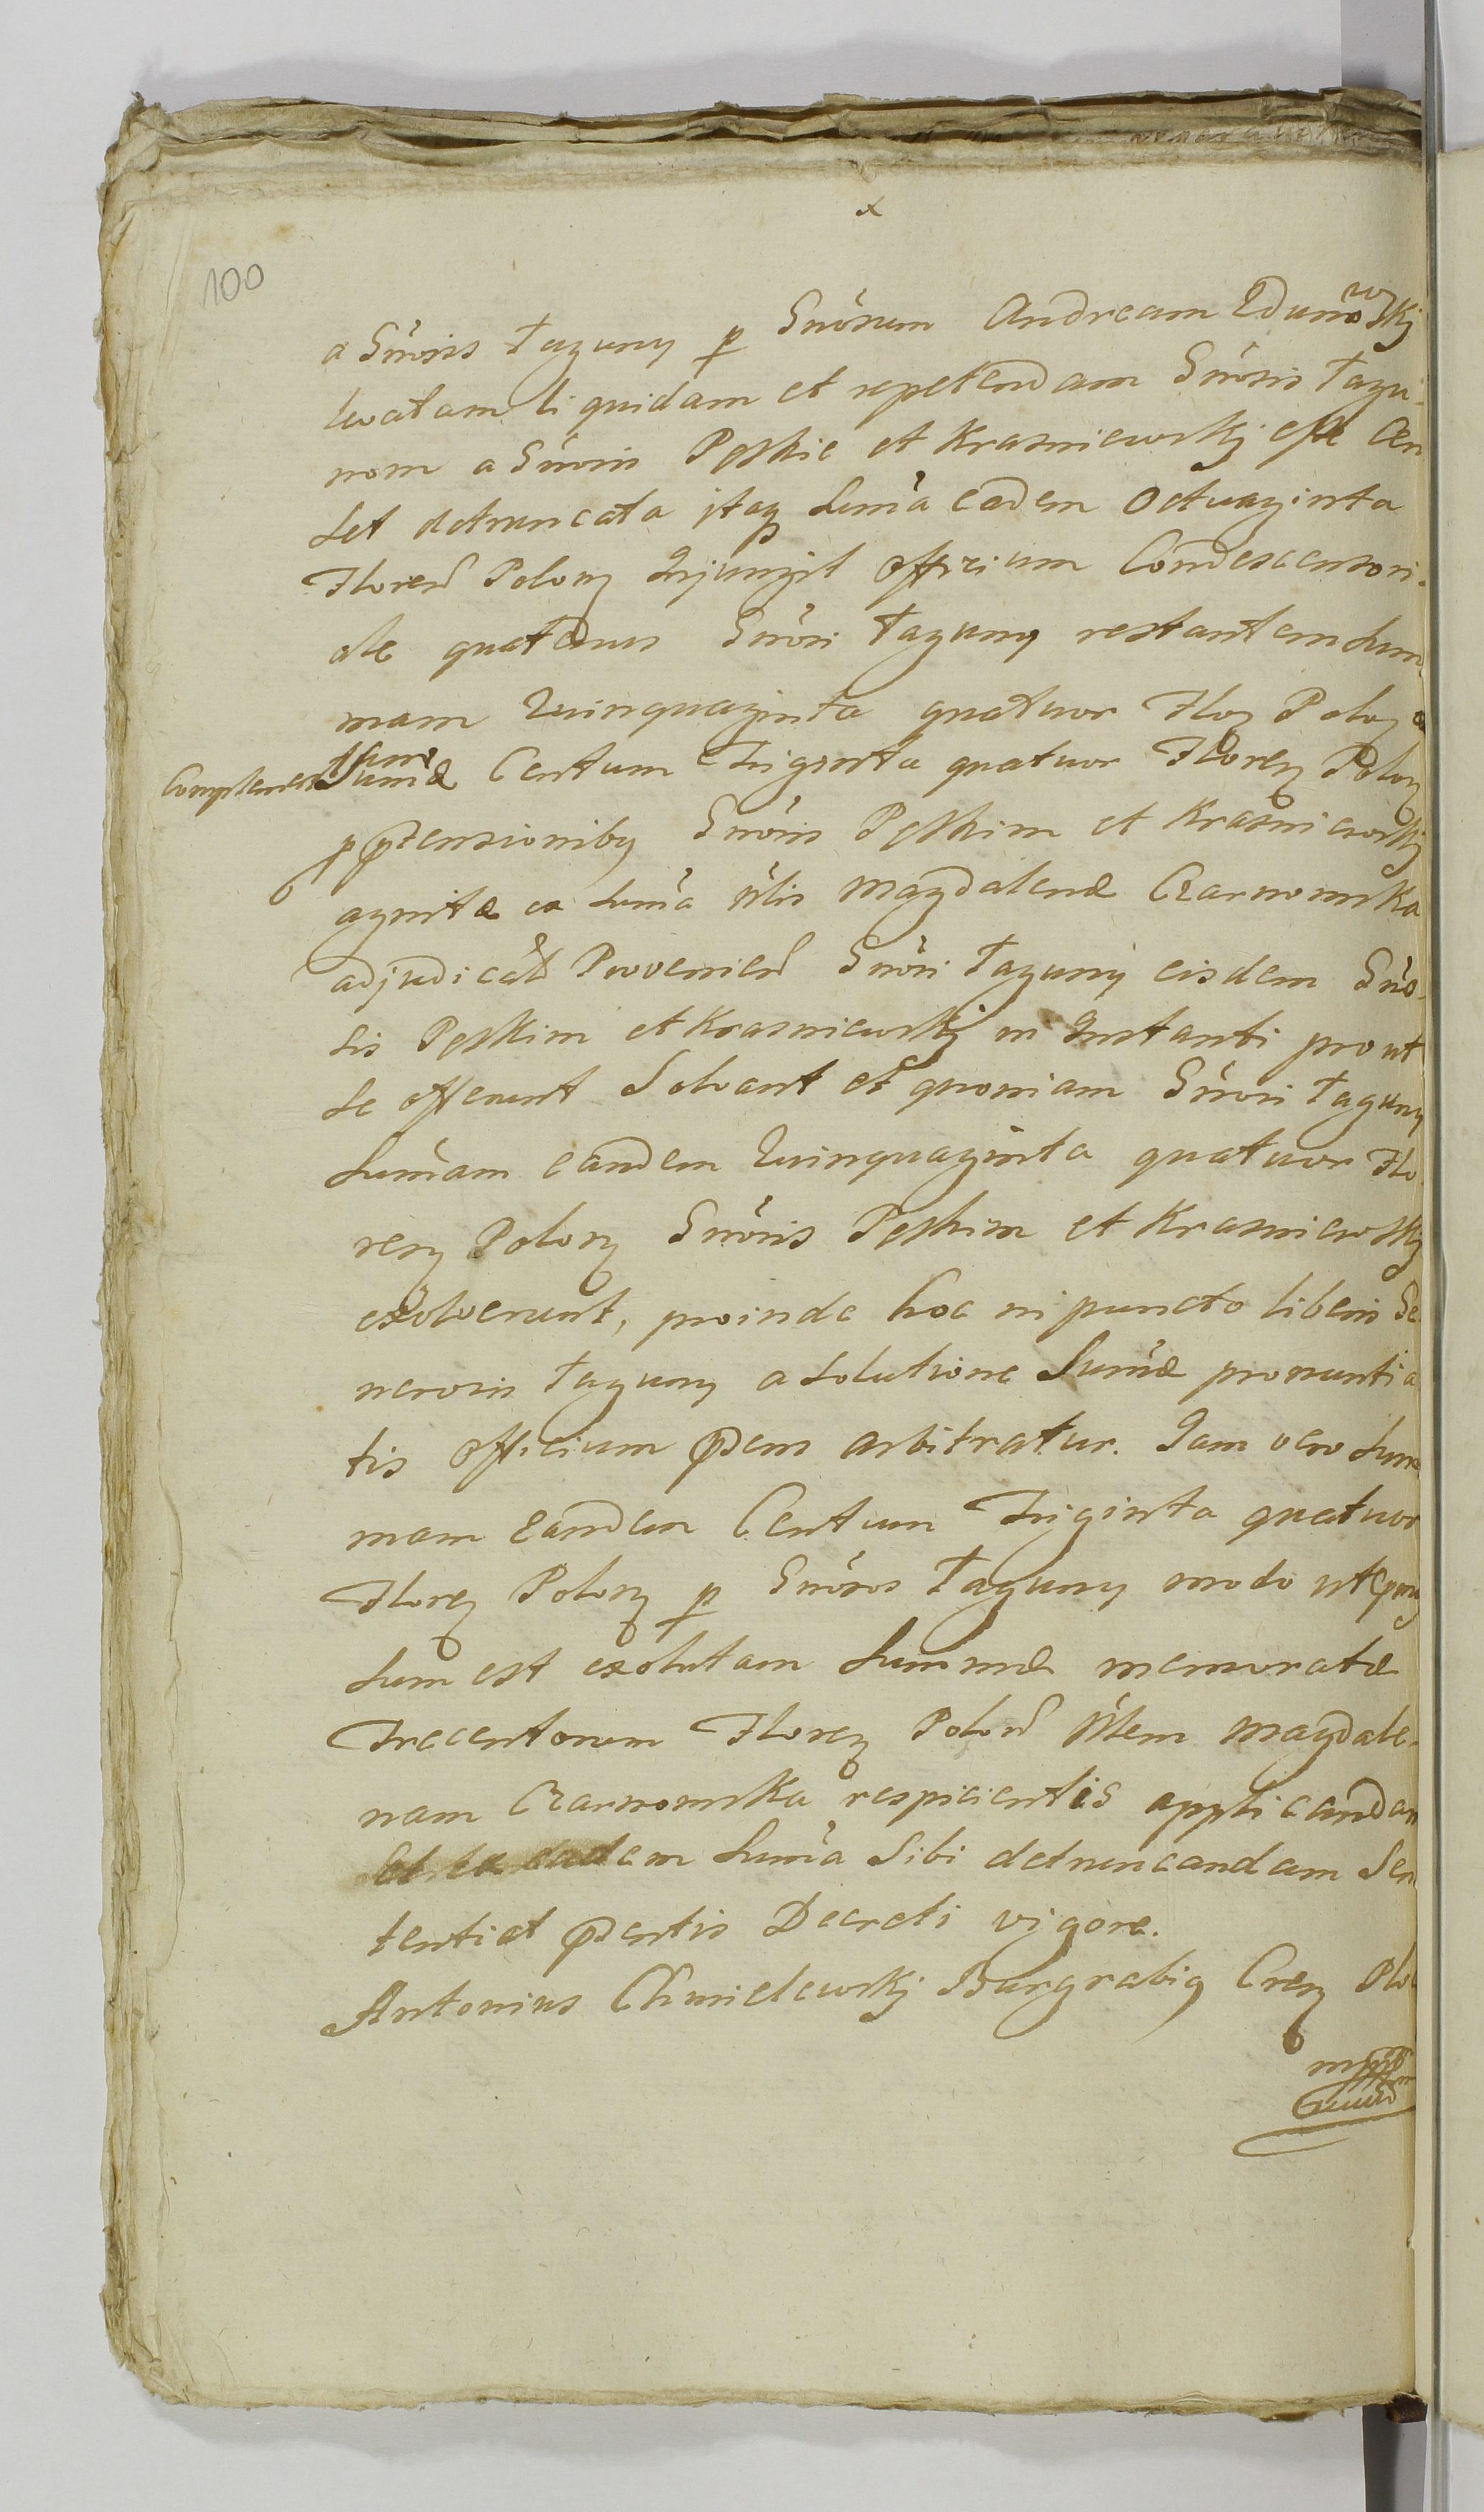 x
100
a Gnosis Łaguny p Gnosum Andream Zdunowskj
levatam liquidam et repetendam Gnosis Łagu-
nom a Gnosis Pęskie et Krasniewskj esse Cen
set detruncata itaq Suma eadem Octuaginta
Floren Polon Injungit officium Condescensori-
ale quatenus Gnosi Łaguny restantem Sum
mam Quinquaginta quatuor Flor Polon
Complementum Sumæ Centum Triginta quatuor Floren Polon
p prætensionibus Gnosis Pęskim et Krasniewskj
agnitæ ex Suma Nlis Magdalenæ Czarnomska
adjudicat Provenien Gnosi Łaguny eisdem Gno-
sis Pęskim et Krasniewskj in Instanti prout
se offerunt Solvant et quoniam Gnosi Łaguny
Sumam eandem Quinquaginta quatuor Flo
ren Polon Gnosis Pęskim et Krasniewskj
exolverunt, proinde hoc in puncto liberis Ge
nerosis Łaguny a solutione Sumæ pronuntia
tis officium præsens arbitratur. Jam vero Sum
mam eandem Centum Triginta quatuor
Floren Polon p Gnosos Łaguny modo ut expres
sum est exolutam Summæ memoratæ
Trecentorum Floren Polon Nlem Magdale-
nam Czarnomska respicientis applicandam
et ex eadem Suma Sibi detruncandam Sen
tentiat præsentis Decreti vigore.
Antonius Chmielewskj Burgrabius Cren Plo
mpp